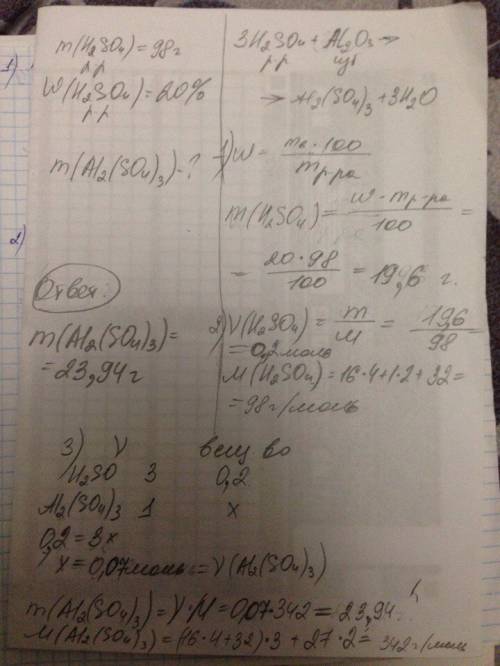 1) m(H2SO4) = 98г
р р
W(H2SO4) = 20%
р р
m(Al2(SO4)3) - ?
3H2SO4 + Al2O3 →
р р изб
→ Al2(SO4)3 + 3H2O
1) W = mв · 100 / mр-ра
m(H2SO4) = W · mр-ра / 100 =
= 20 · 98 / 100 = 19,6 г.
2)
2) V(H2SO4) = m / M = 19,6 / 98
= 0,2 моль
M(H2SO4) = 16·4+1·2+32=
= 98 г/моль
Ответ:
m(Al2(SO4)3) =
= 23,94 г
3) V вещ во
H2SO 3 0,2
Al2(SO4)3 1 x
0,2 = 3x
x = 0,07 моль = V(Al2(SO4)3)
m(Al2(SO4)3) = V·M = 0,07·342 = 23,94
M(Al2(SO4)3) = (16·4+32)·3 + 27·2 = 342 г/моль